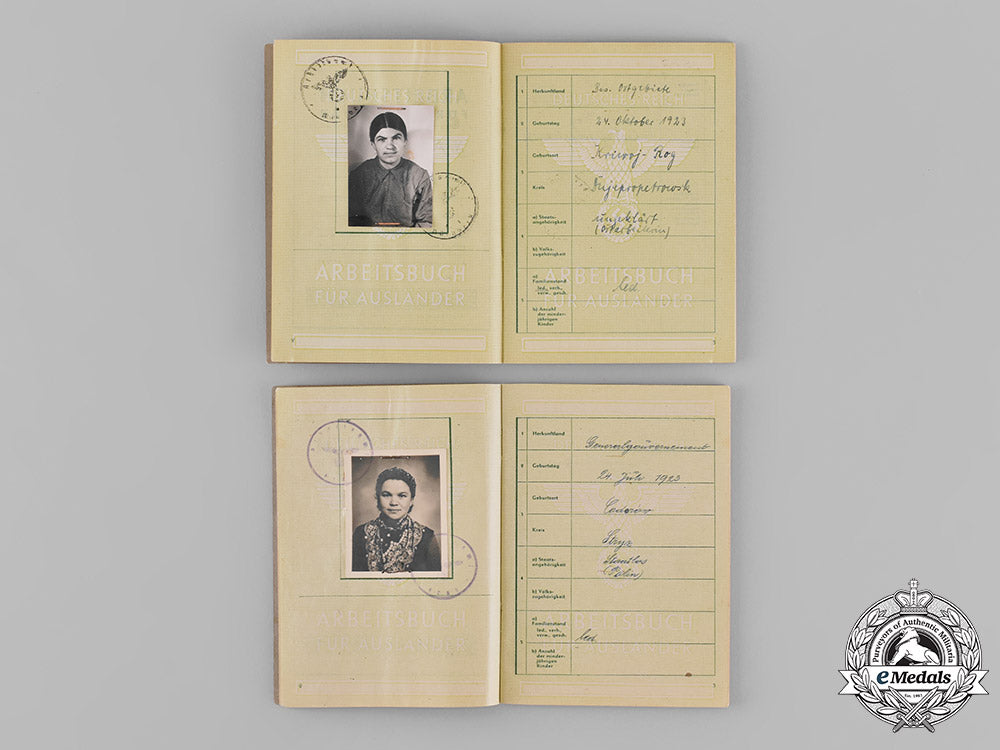 Arbeitsamt
ARBEITSBUCH
FÜR AUSLÄNDER
1 Herkunftland Bes. Ostgebiete
DEUTSCHES REICH
2 Geburtstag 24. Oktober 1923
Geburtsort Kriwoj-Rog
3
Kreis Dnjepropetrowsk
a) Staats-
angehörigkeit ungeklärt
(Ostarbeiterin)
4
b) Volks-
zugehörigkeit
a)
Familienstand led
led., verh.,
verw., gesch.
5
b) Anzahl
der minder-
jährigen
Kinder
ARBEITSBUCH
FÜR AUSLÄNDER
3
ARBEITSBUCH
FÜR AUSLÄNDER
1 Herkunftland Generalgouvernement
2 Geburtstag 24. Juli 1923
Geburtsort
3
Kreis Stryz
a) Staats-
angehörigkeit Staatlos
(Polin)
4
b) Volks-
zugehörigkeit
a)
Familienstand
led., verh.,
verw., gesch. led.
5
b) Anzahl
der minder-
jährigen
Kinder
ARBEITSBUCH
FÜR AUSLÄNDER
3
Purveyors of Authentic Militaria
eMedals
Est. 1967